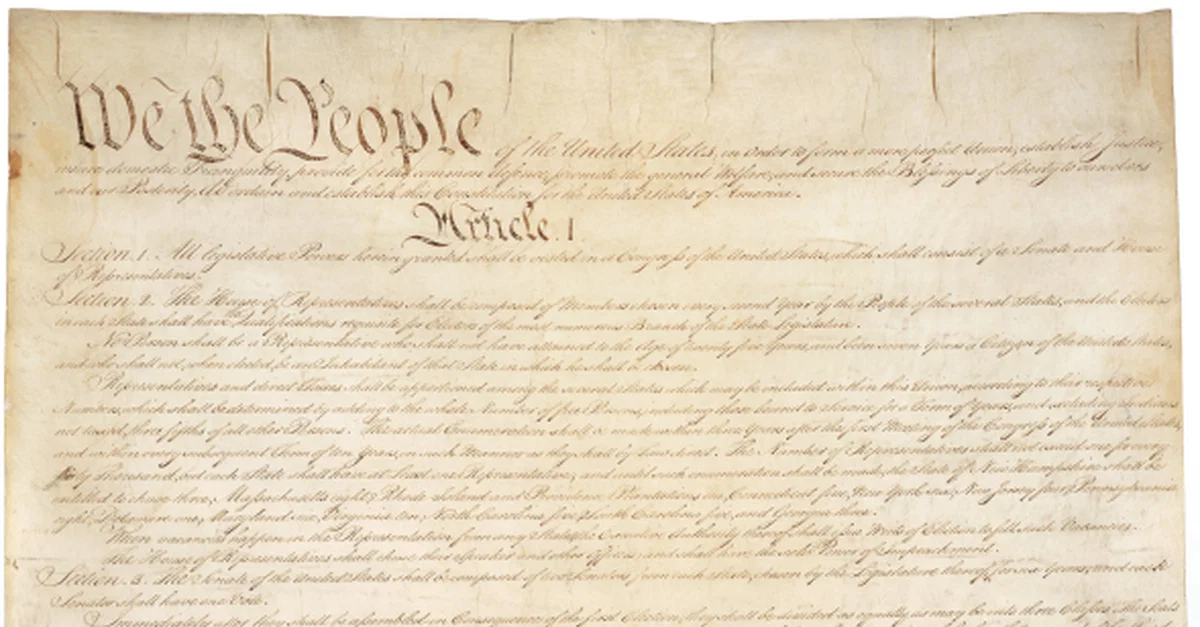 We the People of the United States, in Order to form a more perfect Union, establish Justice,
insure domestic Tranquility, provide for the common defence, promote the general Welfare, and secure the Blessings of Liberty to ourselves
and our Posterity, do ordain and establish this Constitution for the United States of America.
Article. I.
Section. 1. All legislative Powers herein granted shall be vested in a Congress of the United States, which shall consist of a Senate and House
of Representatives.
Section. 2. The House of Representatives shall be composed of Members chosen every second Year by the People of the several States, and the Electors
in each State shall have the Qualifications requisite for Electors of the most numerous Branch of the State Legislature.
No Person shall be a Representative who shall not have attained to the Age of twenty five Years, and been seven Years a Citizen of the United States,
and who shall not, when elected, be an Inhabitant of that State in which he shall be chosen.
Representatives and direct Taxes shall be apportioned among the several States which may be included within this Union, according to their respective
Numbers, which shall be determined by adding to the whole Number of free Persons, including those bound to Service for a Term of Years, and excluding Indians
not taxed, three fifths of all other Persons. The actual Enumeration shall be made within three Years after the first Meeting of the Congress of the United States,
and within every subsequent Term of ten Years, in such Manner as they shall by Law direct. The Number of Representatives shall not exceed one for every
thirty Thousand, but each State shall have at Least one Representative; and until such enumeration shall be made, the State of New Hampshire shall be
entitled to chuse three, Massachusetts eight, Rhode Island and Providence Plantations one, Connecticut five, New York six, New Jersey four, Pennsylvania
eight, Delaware one, Maryland six, Virginia ten, North Carolina five, South Carolina five, and Georgia three.
When vacancies happen in the Representation from any State, the Executive Authority thereof shall issue Writs of Election to fill such Vacancies.
The House of Representatives shall chuse their Speaker and other Officers; and shall have the sole Power of Impeachment.
Section. 3. The Senate of the United States shall be composed of two Senators from each State, chosen by the Legislature thereof, for six Years; and each
Senator shall have one Vote.
Immediately after they shall be assembled in Consequence of the first Election, they shall be divided as equally as may be into three Classes. The Seats